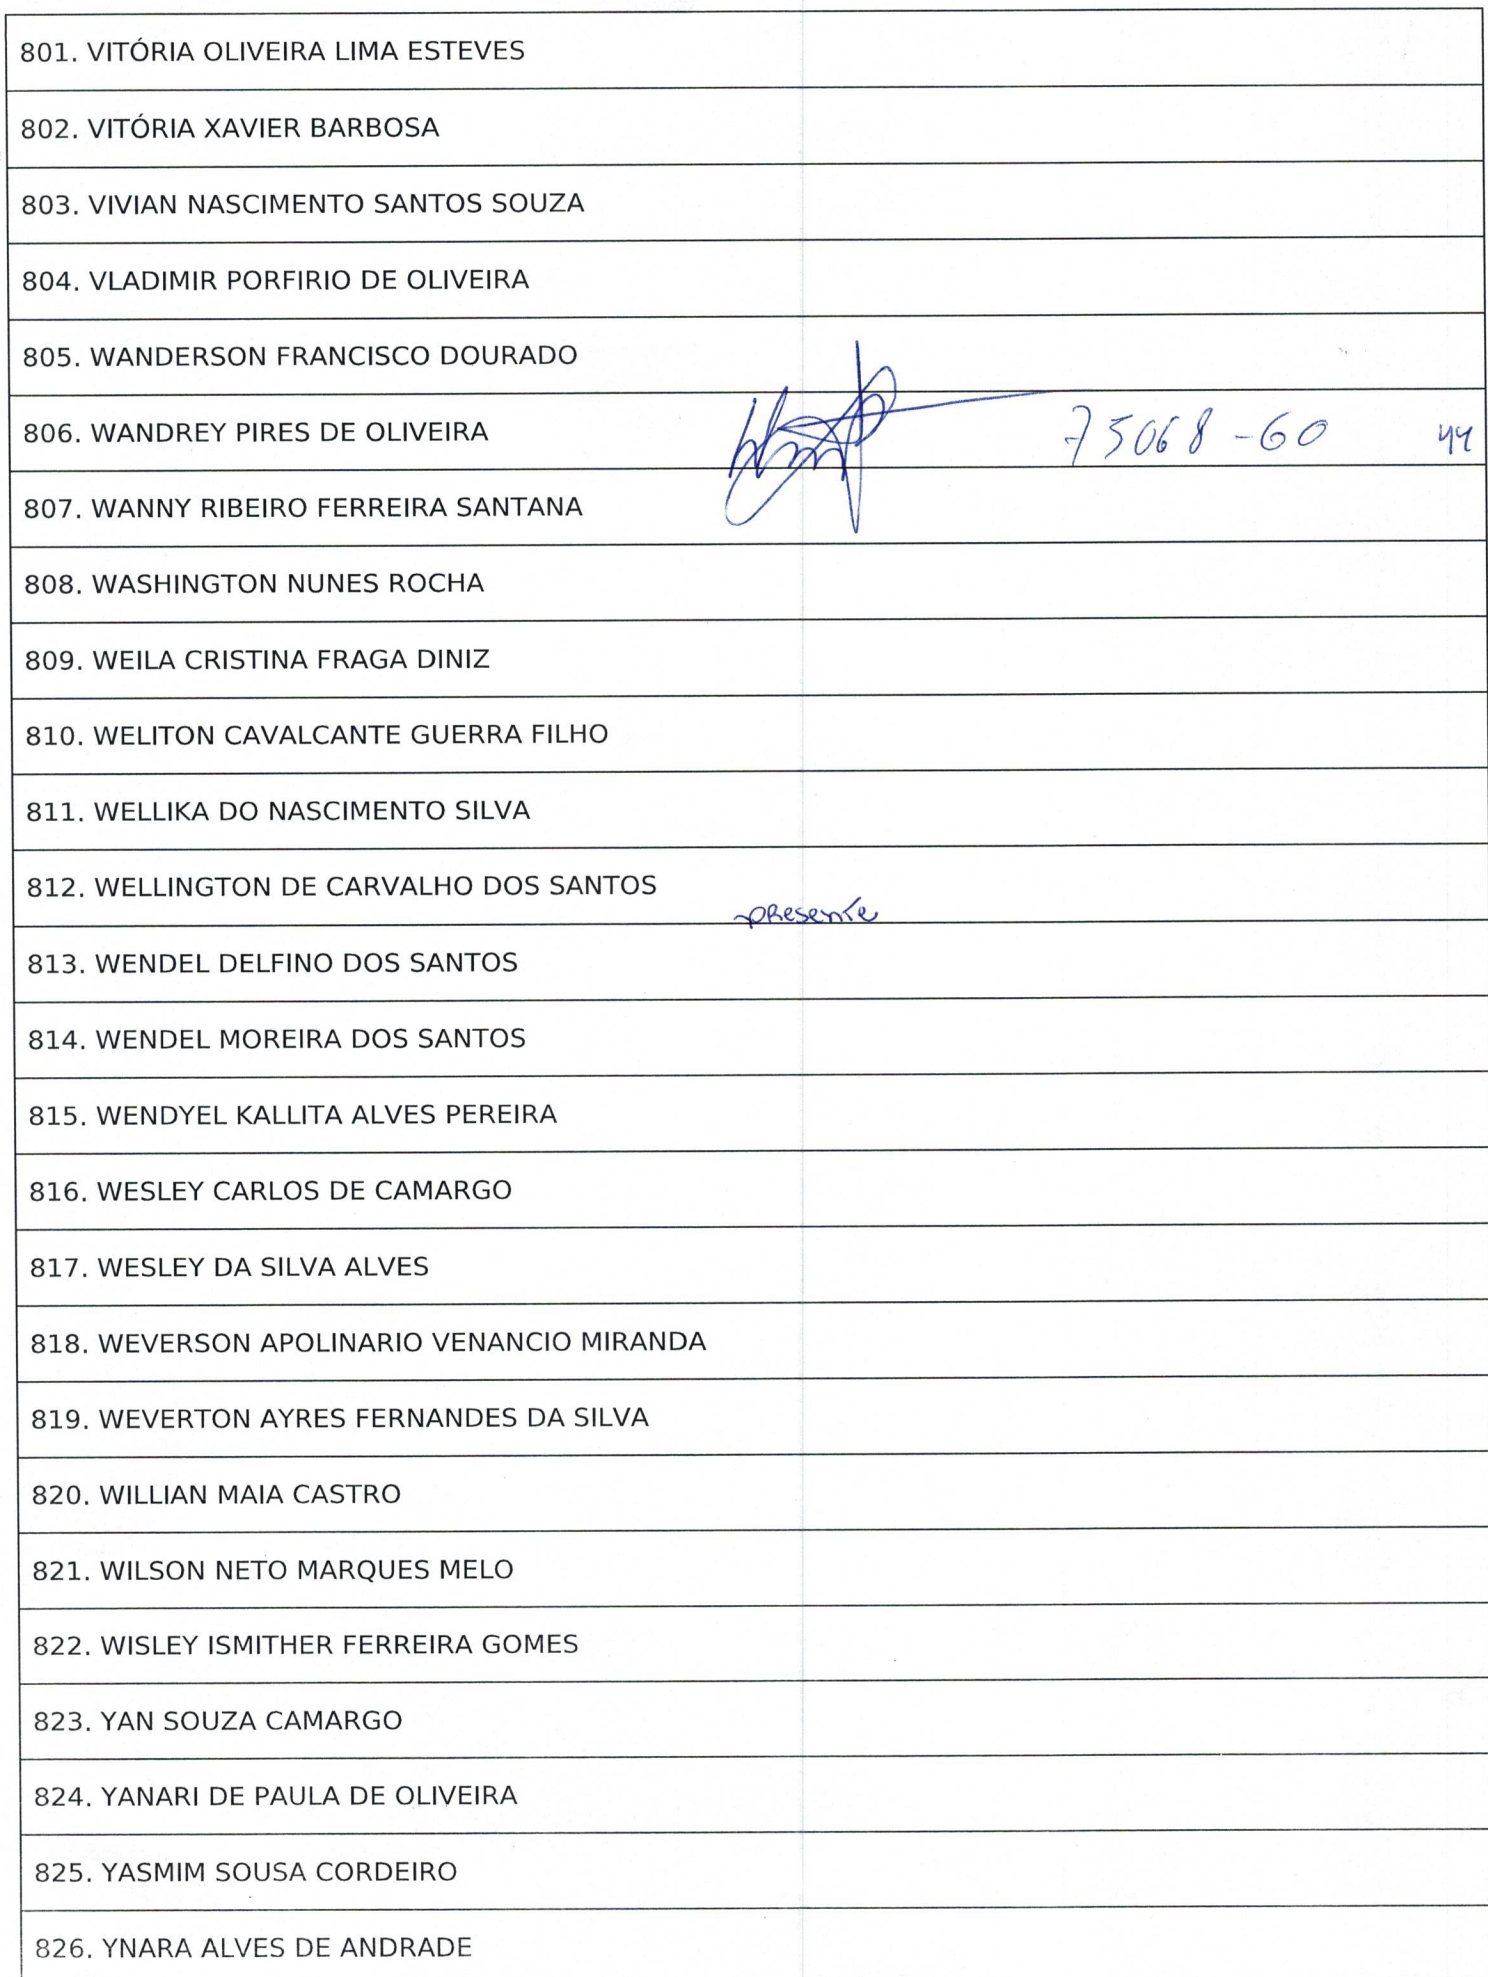 801. VITÓRIA OLIVEIRA LIMA ESTEVES
802. VITÓRIA XAVIER BARBOSA
803. VIVIAN NASCIMENTO SANTOS SOUZA
804. VLADIMIR PORFIRIO DE OLIVEIRA
805. WANDERSON FRANCISCO DOURADO
806. WANDREY PIRES DE OLIVEIRA 75068-60 44
807. WANNY RIBEIRO FERREIRA SANTANA
808. WASHINGTON NUNES ROCHA
809. WEILA CRISTINA FRAGA DINIZ
810. WELITON CAVALCANTE GUERRA FILHO
811. WELLIKA DO NASCIMENTO SILVA
812. WELLINGTON DE CARVALHO DOS SANTOS presente
813. WENDEL DELFINO DOS SANTOS
814. WENDEL MOREIRA DOS SANTOS
815. WENDYEL KALLITA ALVES PEREIRA
816. WESLEY CARLOS DE CAMARGO
817. WESLEY DA SILVA ALVES
818. WEVERSON APOLINARIO VENANCIO MIRANDA
819. WEVERTON AYRES FERNANDES DA SILVA
820. WILLIAN MAIA CASTRO
821. WILSON NETO MARQUES MELO
822. WISLEY ISMITHER FERREIRA GOMES
823. YAN SOUZA CAMARGO
824. YANARI DE PAULA DE OLIVEIRA
825. YASMIM SOUSA CORDEIRO
826. YNARA ALVES DE ANDRADE